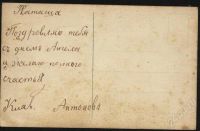 Наташа
Поздровляю тебя
съ днемъ Ангела
и желаю полного
счастья
Клав. Антонова